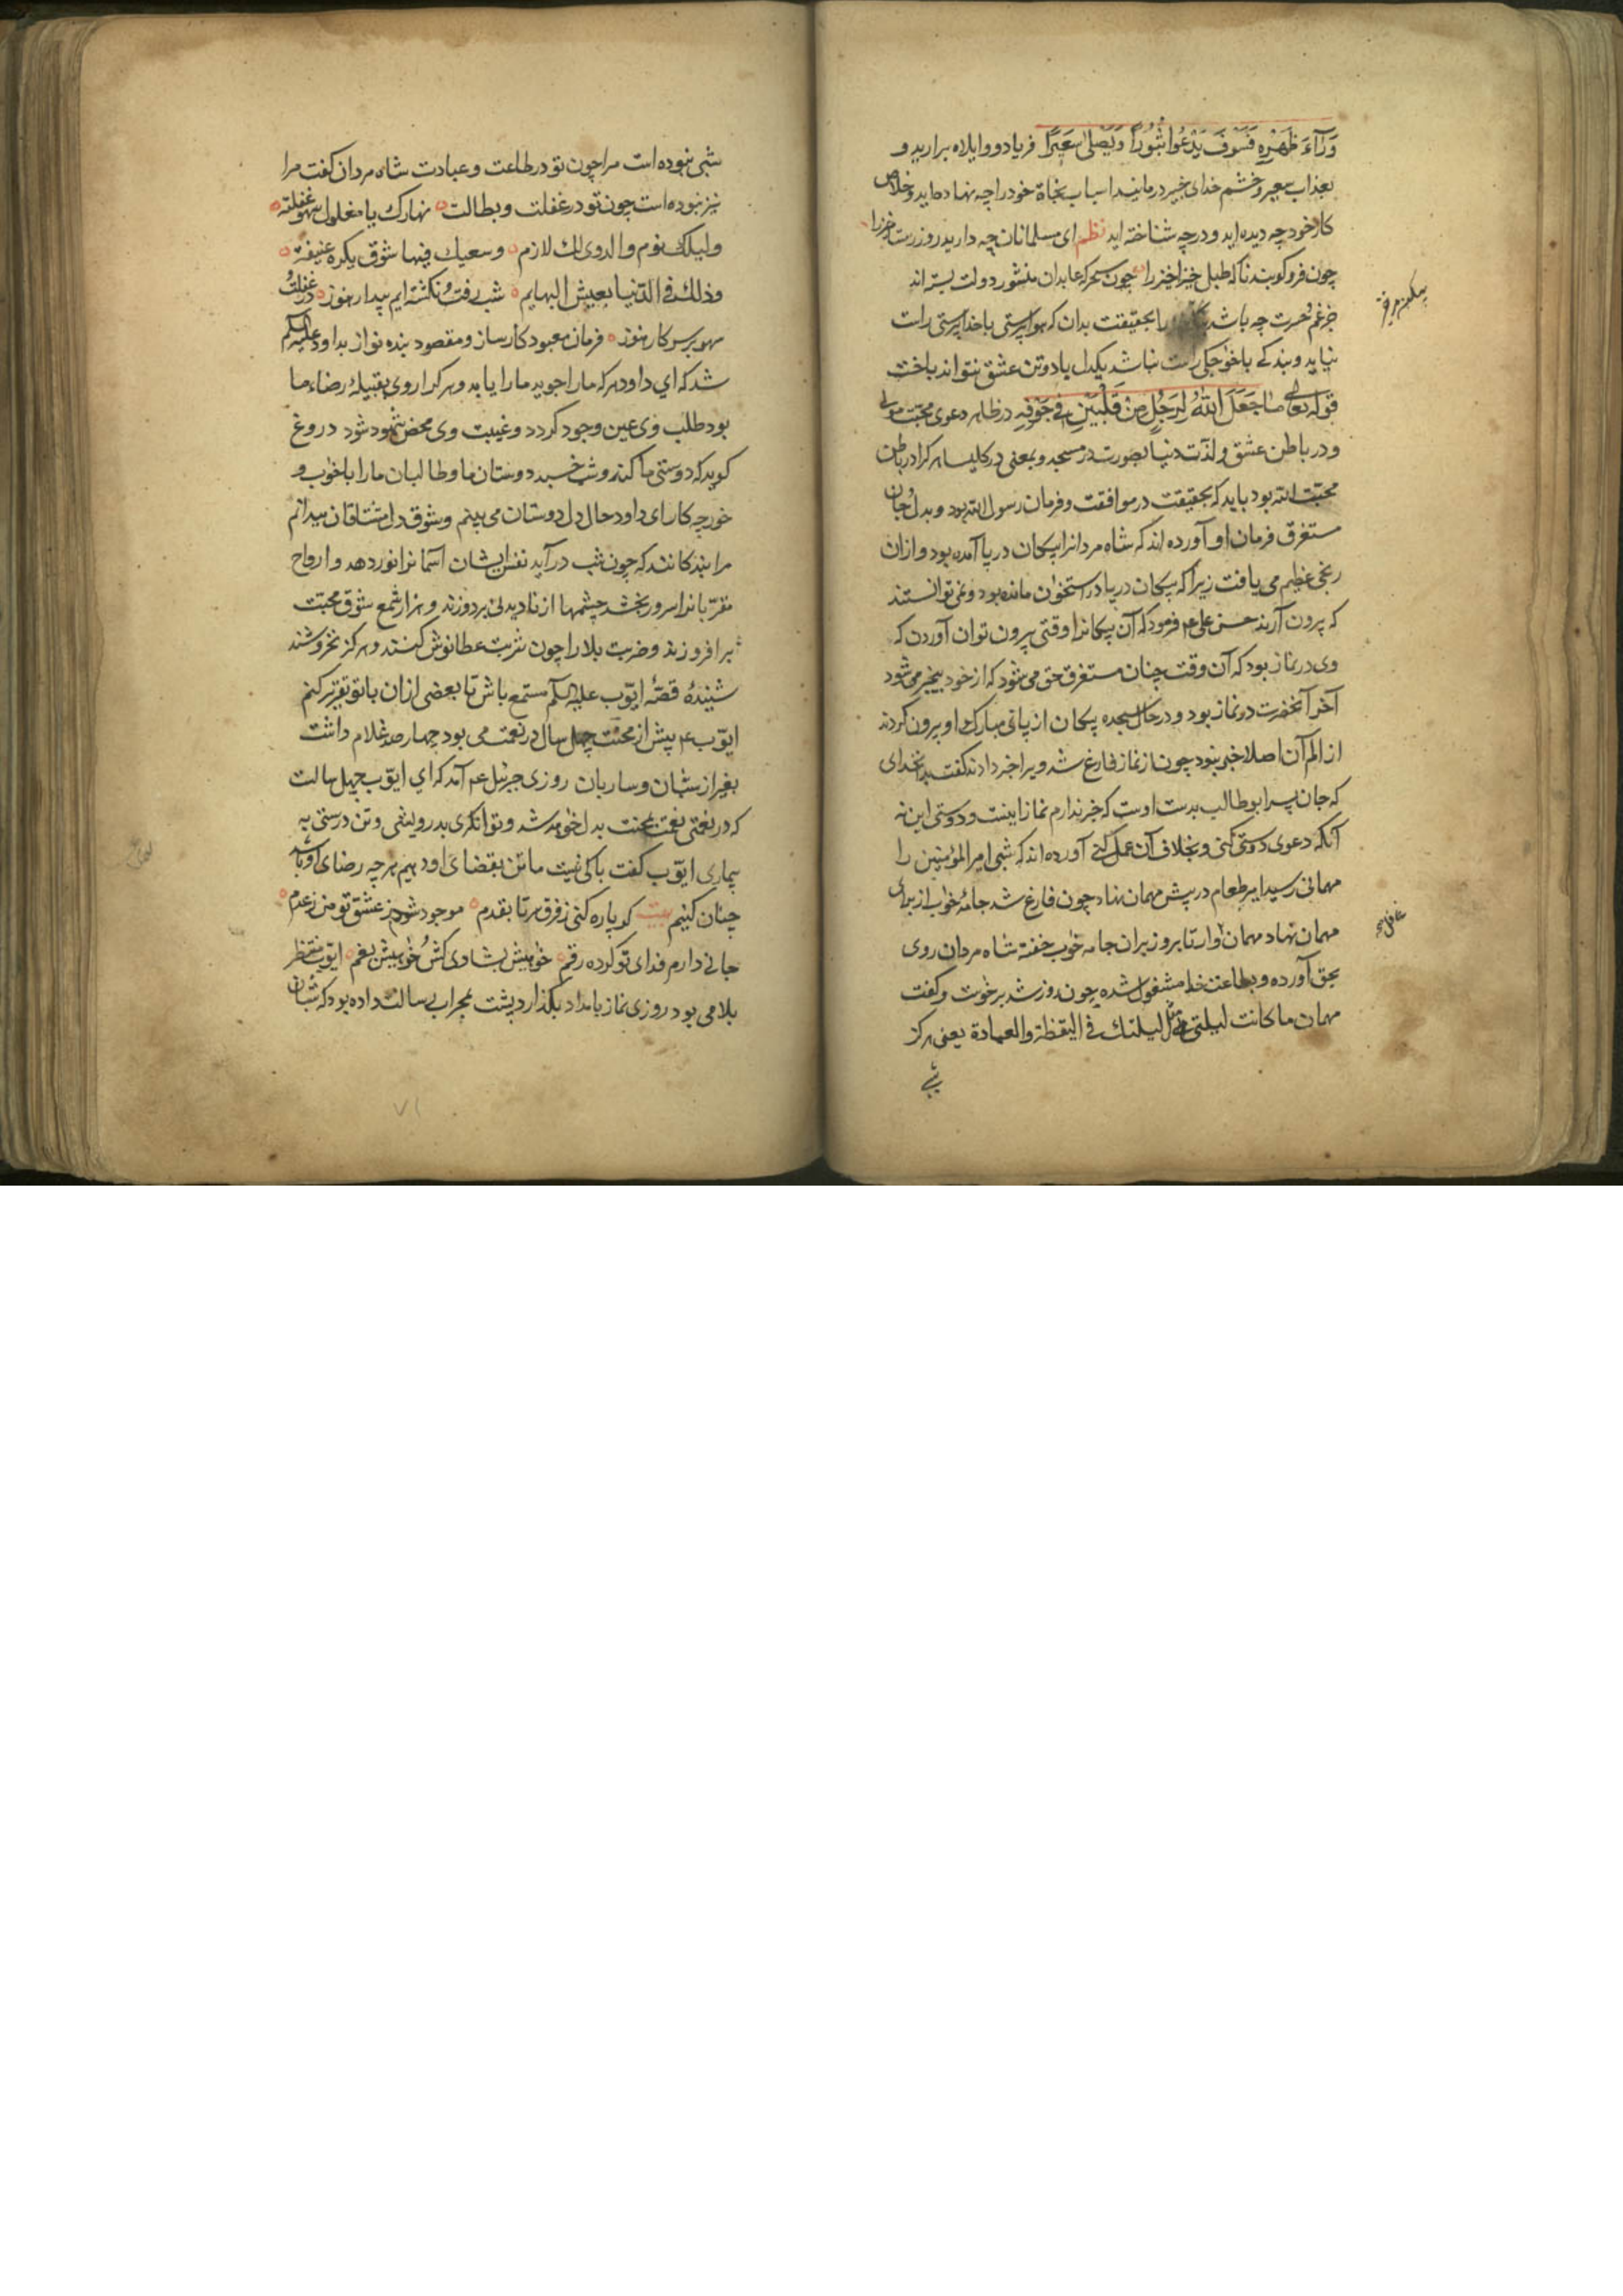 وَرَآءَ ظَهْرِهِ فَسَوْفَ يَدْعُوا ثُبُورًا وَيَصْلٰى سَعِيرًا فریاد و وایلاه برارید و
بعذاب سعیر و خشم خدای خبیر درمانید اسباب نجاة خود را چه نهاده اید و خلاص
کار خود چه دیده اید و در چه شناخته اید نظم ای مسلمانان چه دارید روز رستاخیز را
چون فرو کوبند ناکه طبل خیزاخیز را چون سحرکه عابدان منشور دولت بستراند
جز غم و حسرت چه باشد را بحقیقت بدان که هواپرستی با خداپرستی راست
نیاید و بندکی با خواجکی راست نباشد یکدل با دو تن عشق نتواند باخت
قوله تعالی مَا جَعَلَ اللّٰهُ لِرَجُلٍ مِنْ قَلْبَيْنِ فِي جَوْفِهِ در ظاهر دعوی محبت مولی
و در باطن عشق و لذت دنیا بصورت در مسجد و بمعنی در کلیسا هر کرا در باطن
محبت الله بود باید که بحقیقت در موافقت و فرمان رسول الله بود و بدل و جان
مستغرق فرمان او آورده اند که شاه مردانرا پیکان در پا آمده بود و ازان
رنجی عظیم می یافت زیرا که پیکان در پا در استخوان مانده بود و نمی توانستند
که بیرون آرند حسن علی ع م فرمود که آن پیکانرا وقتی بیرون توان آوردن که
وی در نماز بود که آن وقت چنان مستغرق حق می شود که از خود بیخبر می شود
آخر آنحضرت در نماز بود و در حال سجده پیکان از پای مبارک او بیرون کردند
از الم آن اصلا خبر نبود چون از نماز فارغ شد ویرا خبر دادند کفت بدانخدای
که جان پسر ابوطالب بدست اوست که خبر ندارم نماز اینست و دوستی این نه
آنکه دعوی دوستی کنی و بخلاف آن عمل کنی آورده اند که شبی امیر المؤمنین را
مهمانی رسید امیر طعام در پیش مهمان نهاد چون فارغ شد جامهٔ خواب از برای
مهمان نهاد مهمان تا بروز بران جامه خواب خفته شاه مردان روی
بحق آورده و بطاعت خدا مشغول شده چون روز شد برخواست و کفت
مهمان ما کانت لیلتی مثل لیلتك فی الیقظة والعبادة یعنی هرکز
شبی
شبی نبوده است مرا چون تو در طاعت و عبادت شاه مردان کفت مرا
نیز نبوده است چون تو در غفلت و بطالت نهارك یا مغلول سهو و غفلة
ولیلك نوم والردی لك لازم وسعیك فیها شوق یکره
وذلك فی الدنیا یعیش البهایم شب رفت و نکشته ایم بیدار هنوز در غفلت و
سهو بر سر کار هنوز فرمان معبود کارساز و مقصود بنده نواز بداود علیه السلم
شد که ای داود هر که ما را جوید ما را یابد و هر کرا روی بقبیلهٔ رضاء ما
بود طلب وی عین وجود کردد و غیبت وی محض شهود شود دروغ
کوید که دوستی ما کند و شب خسبد دوستان ما و طالبان ما را با خواب و
خور چه کار ای داود حال دل دوستان می بینم و شوق دل مشتاقان میدانم
مرا بندکانند که چون شب درآید نفس ایشان آسمانرا نور دهد و ارواح
مقربانرا سرور بخشد چشمها از نادیدنی بردوزند و هزار شمع شوق محبت
برافروزند و ضربت بلا را چون شربت عطا نوش کنند و هرکز نخروشند
شنیدهٔ قصهٔ ایّوب علیه السلم مستمع باش تا بعضی ازان با تو تقریر کنم
ایّوب ع م پیش از محنت چهل سال در نعمت می بود چهار صد غلام داشت
بغیر از شبان و ساربان روزی جبرئیل ع م آمد که ای ایّوب چهل سالست
که در نعمتی نعمت بمحنت بدل خواهد شد و توانکری بدرویشی و تن درستی به
بیماری ایّوب کفت باکی نیست ما تن بقضای او دهیم هر چه رضای او باشد
چنان کنیم بیت کر پاره کنی ز فرق سر تا بقدم موجود شوم ز عشق تو من ز عدم
جانی دارم فدای تو کرده رقم خواهیش بشادی کش و خواهیش بغم ایّوب منتظر
بلا می بود روزی نماز بامداد بکذارد پشت بمحراب رسالت داده بود که شبان